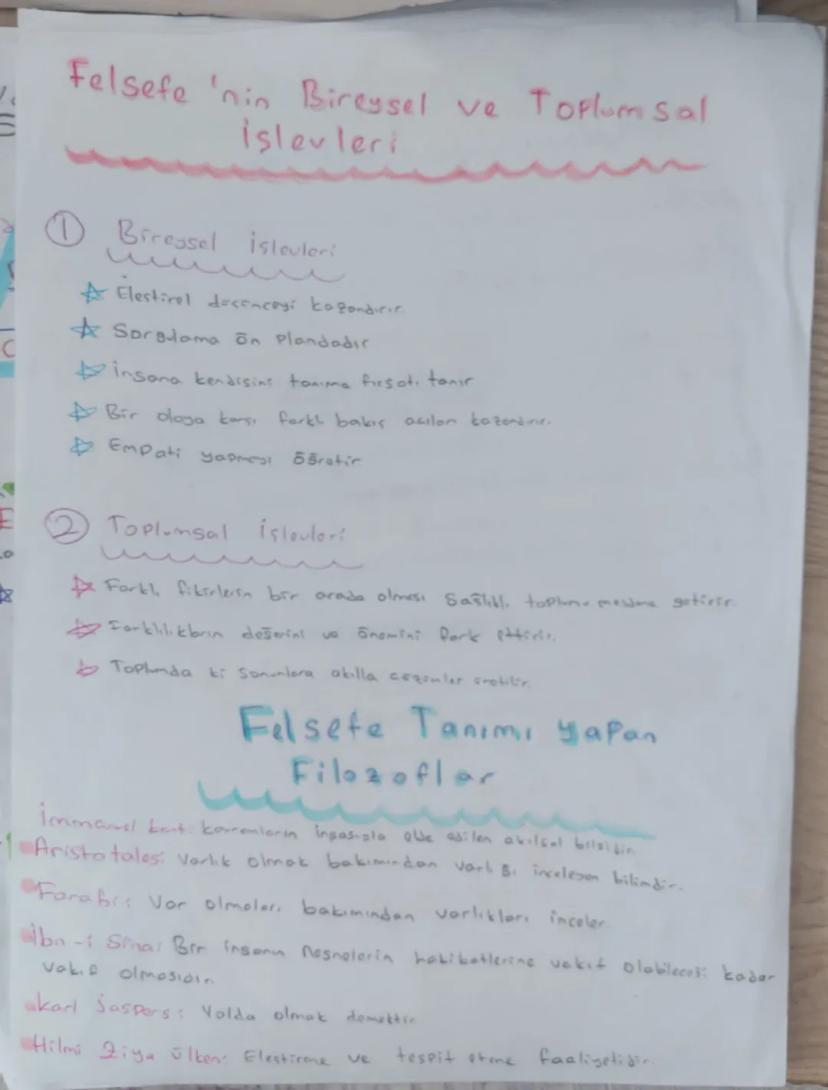 Felsefe 'nin Bireysel ve Toplumsal
İşlevleri
1 Bireysel İşlevleri
Eleştirel düşünceyi kazandırır.
Sorgulama ön plandadır
İnsana kendisini tanıma fırsatı tanır
Bir olaya karşı farklı bakış açıları kazandırır.
Empati yapmayı öğretir
2 Toplumsal İşlevleri
Farklı fikirlerin bir arada olması sağlıklı toplumu meydana getirir.
Farklılıkların değerini ve önemini fark ettirir.
Toplumda ki sorunlara akılla çözümler üretilir.
Felsefe Tanımı yapan
Filozoflar
İmmanuel kant: kavramların inşasıyla elde edilen akılsal bilgidir.
Aristotales: Varlık olmak bakımından varlığı inceleyen bilimdir.
Farabi: Var olmaları bakımından varlıkları inceler
İbn-i Sina: Bir insanın nesnelerin hakikatlerine vakıf olabileceği kadar
vakıf olmasıdır.
Karl Jaspers: Yolda olmak demektir
Hilmi Ziya Ülken: Eleştirme ve tespit etme faaliyetidir.